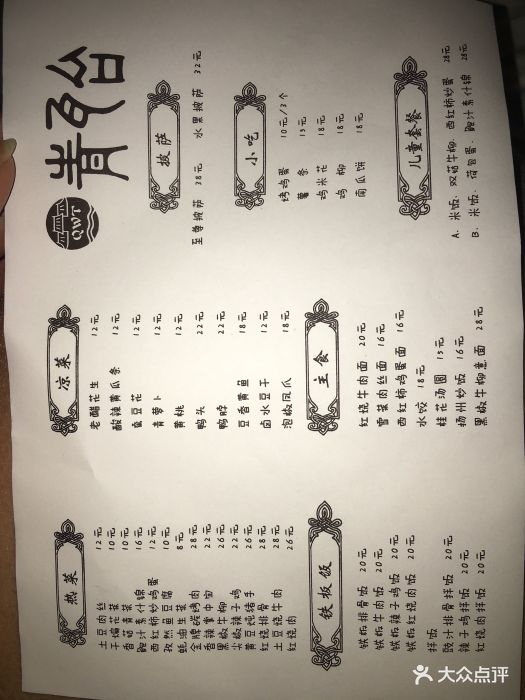 青瓦台
QWT
热菜
土豆肉丝 12元
干煸花菜 10元
香菇青菜 10元
鲍汁素什锦 16元
西红柿炒鸡蛋 12元
孜然鱼豆腐 10元
蚝油生菜 8元
金牌碳烤肉 28元
香辣掌中宝 22元
黑椒牛柳 26元
尖椒辣子鸡 22元
黄豆炖猪手 26元
红烧排骨 28元
土豆烧牛肉 28元
红烧肉 26元
凉菜
老醋花生 12元
酸辣黄瓜条 12元
鱼豆花 12元
青萝卜 12元
黄桃 12元
鸭头 22元
鸭脖 22元
豆香黄鱼 18元
卤水豆干 12元
泡椒凤爪 18元
披萨
至尊披萨 38元 水果披萨 32元
小吃
烤鸡蛋 10元/3个
薯条 15元
鸡米花 18元
鸡柳 18元
南瓜饼 18元
铁板饭
铁板排骨饭 20元
铁板牛肉饭 20元
铁板辣子鸡饭 20元
铁板红烧肉饭 20元
拌饭
豉汁排骨拌饭 20元
辣子鸡拌饭 20元
红烧肉拌饭 20元
主食
红烧牛肉面 20元
雪菜肉丝面 16元
西红柿鸡蛋面 16元
水饺 18元
桂花汤圆 15元
扬州炒饭 16元
黑椒牛柳意面 28元
儿童套餐
A. 米饭、双菇牛柳、西红柿炒蛋 28元
B. 米饭、荷包蛋、鲍汁素什锦 28元
大众点评